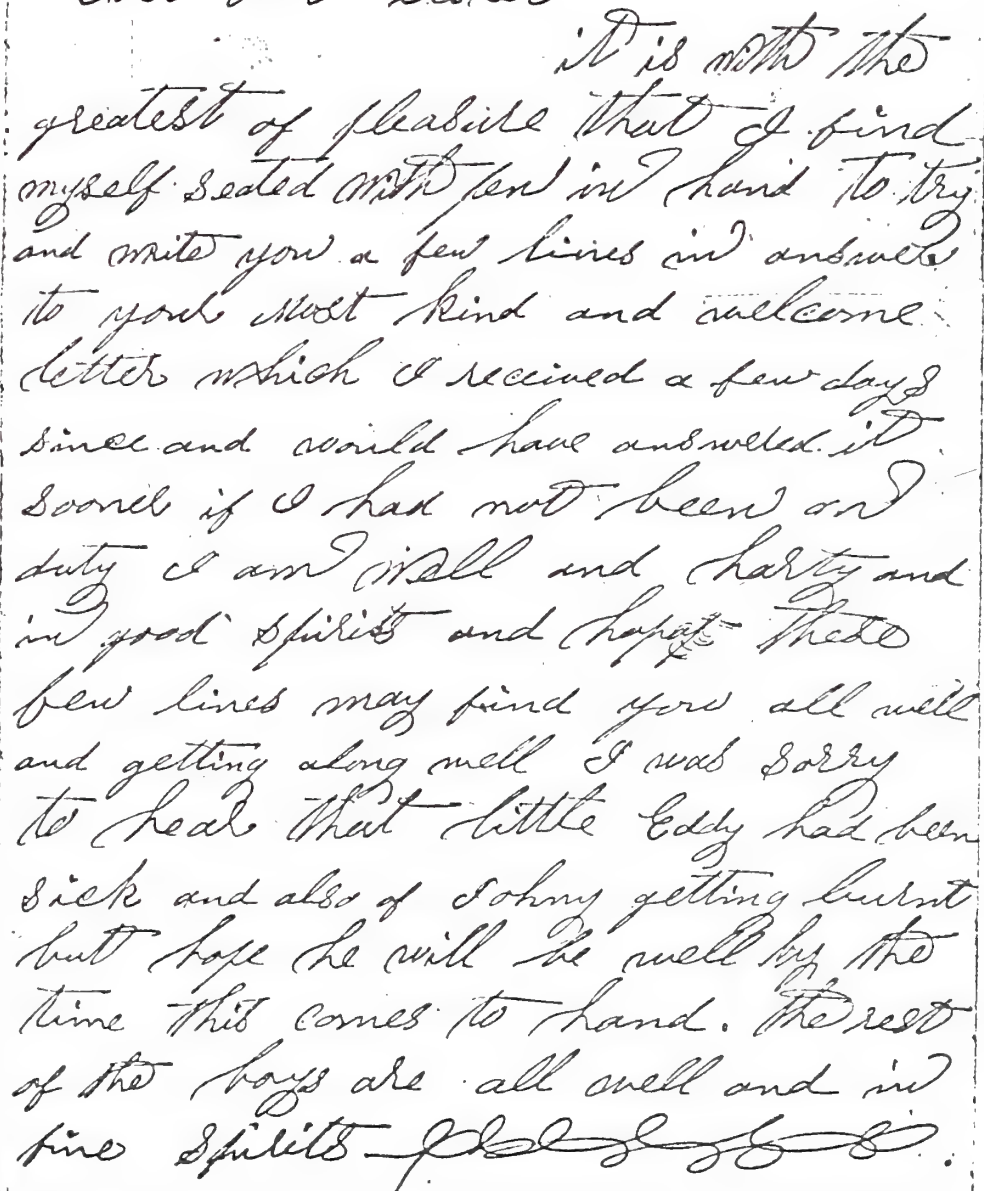 it is with the
greatest of pleasure that I find
myself seated with pen in hand to try
and write you a few lines in answer
to your most kind and welcome
letter which I received a few days
since and would have answered it
sooner if I had not been on
duty I am well and harty and
in good spirits and hope these
few lines may find you all well
and getting along well I was sorry
to hear that little Eddy had been
sick and also of Johny getting burnt
but hope he will be well by the
time this comes to hand. The rest
of the boys are all well and in
fine spirits